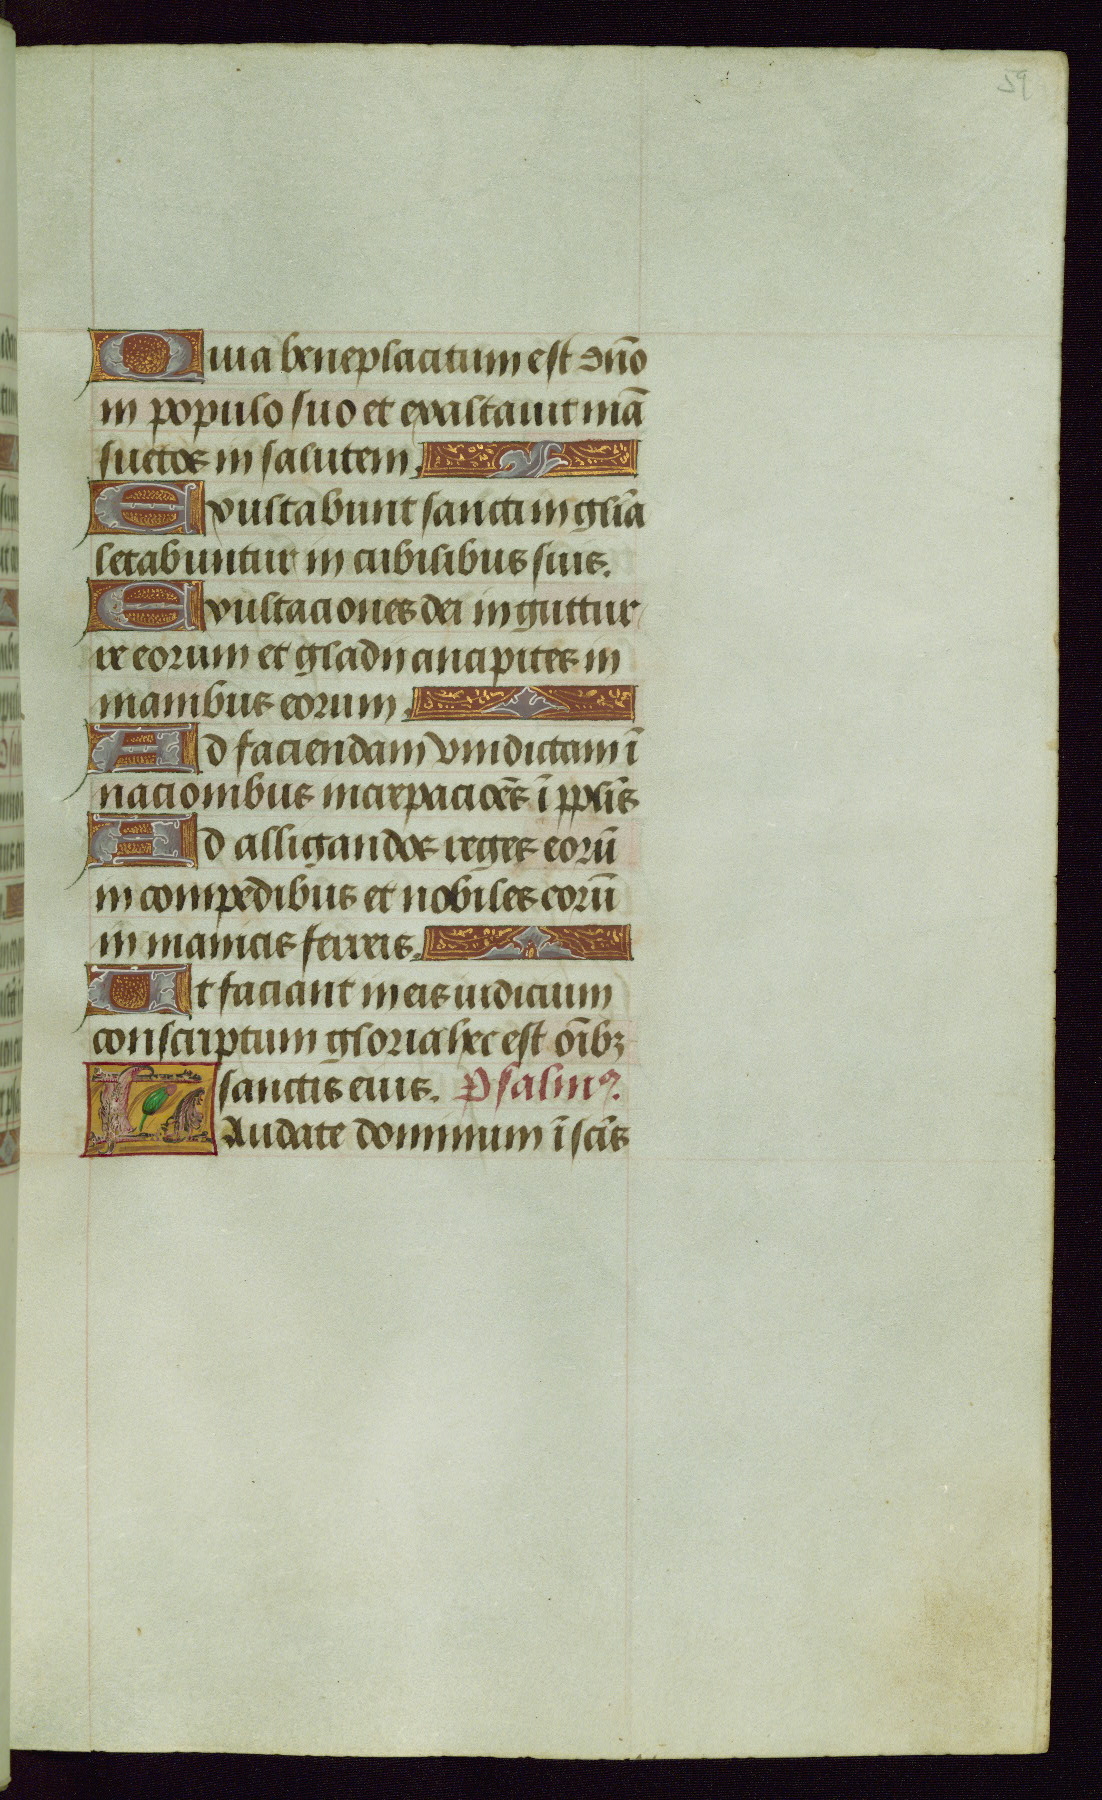 59
Quia beneplacitum est dño
in populo suo et exaltauit mã
suetos in salutem.
Exultabunt sancti in gl̃ia
letabuntur in cubilibus suis.
Exultaciones dei in guttur
re eorum et gladii ancipites in
manibus eorum.
Ad faciendam vindictam ĩ
nacionibus increpacioẽs ĩ ppl̃is
Ad alligandos reges eorũ
in compedibus et nobiles eorũ
in manicis ferreis.
Ut faciant in eis iudicium
conscriptum gloria hec est oĩbꝫ
sanctis eius. Psalmꝰ.
Laudate dominum ĩ scĩs